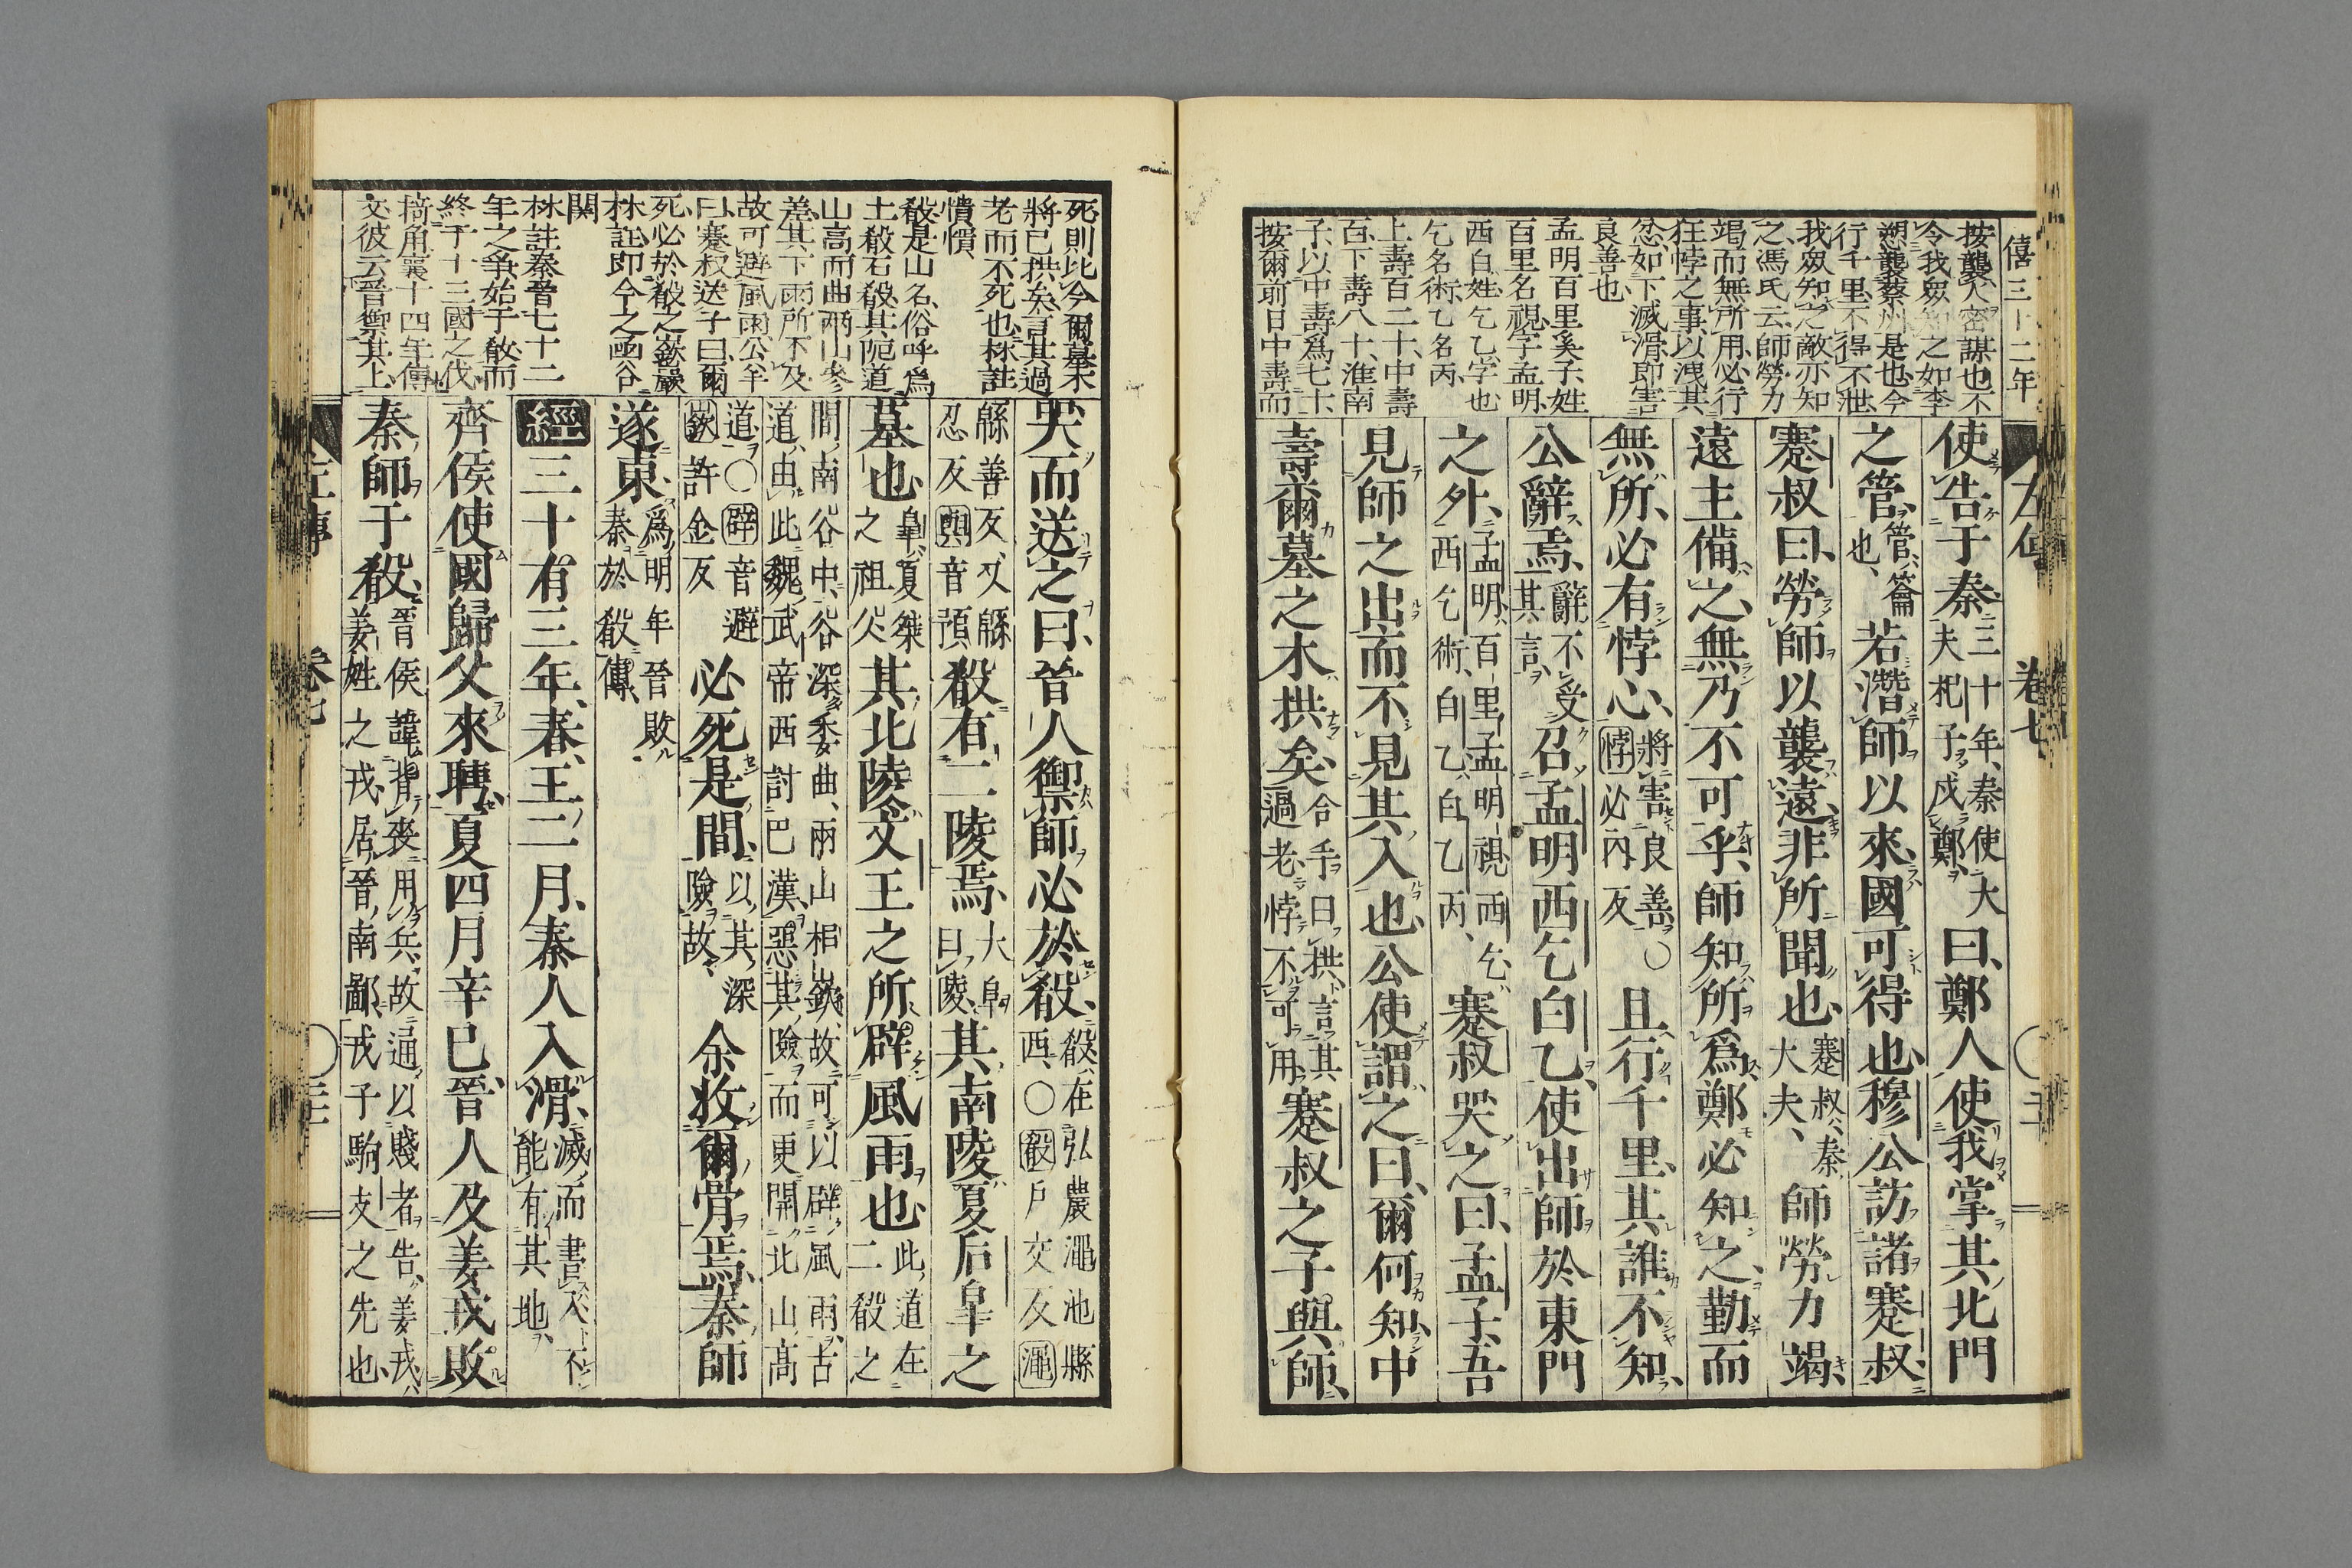 僖三十二年
按襲人密謀也不
令我衆知之如李
愬襲蔡州是也今
行千里不得不泄
我衆知之敵亦知
之馮氏云師勞力
竭而無所用必行
狂悖之事以洩其
忿如下滅滑卽害
良善也
孟明百里奚子姓
百里名視字孟明
西白姓乞乙字也
乞名術乙名丙
上壽百二十中壽
百下壽八十淮南
子以中壽爲七十
按爾前日中壽而
使告于秦三十年秦使大夫杞子戍鄭曰鄭人使我掌其北門
之管管籥也若潛師以來國可得也穆公訪諸蹇叔
蹇叔曰勞師以襲遠非所聞也蹇叔秦大夫師勞力竭
遠主備之無乃不可乎師知所爲鄭必知之勤而
無所必有悖心將害良善○悖必內反且行千里其誰不知
公辭焉辭不受其言召孟明西乞白乙使出師於東門
之外孟明百里孟明視西乞西乞術白乙白乙丙蹇叔哭之曰孟子吾
見師之出而不見其入也公使謂之曰爾何知中
壽爾墓之木拱矣合手曰拱言其過老悖不可用蹇叔之子與師
左傳 卷七
死則比今爾墓木
將已拱矣言其過
老而不死也林註
憒憒
殽是山名俗呼爲
土殽石殽其阨道
山高而曲兩山參
差其下雨所不及
故可避風雨公羊
曰蹇叔送子曰爾
死必於殽之嶔巖
林註卽今之函谷
關
林註秦晉七十二
年之爭始于殽而
終于十三國之伐
掎角襄十四年傳
文彼云晉禦其上
哭而送之曰晉人禦師必於殽殽在弘農澠池縣西○殽戶交反澠
緜善反又緜忍反與音預殽有二陵焉大阜曰陵其南陵夏后皐之
墓也皐夏桀之祖父其北陵文王之所辟風雨也此道在二殽之
間南谷中谷深委曲兩山相嶔故可以辟風雨古道由此魏武帝西討巴漢惡其險而更開北山高
道○辟音避嶔許金反必死是間以其深險故余收爾骨焉秦師
遂東爲明年晉敗秦於殽傳
經三十有三年春王二月秦人入滑滅而書入不能有其地
齊侯使國歸父來聘夏四月辛巳晉人及姜戎敗
秦師于殽晉侯諱背喪用兵故通以賤者告姜戎姜姓之戎居晉南鄙戎子駒支之先也
左傳 卷七